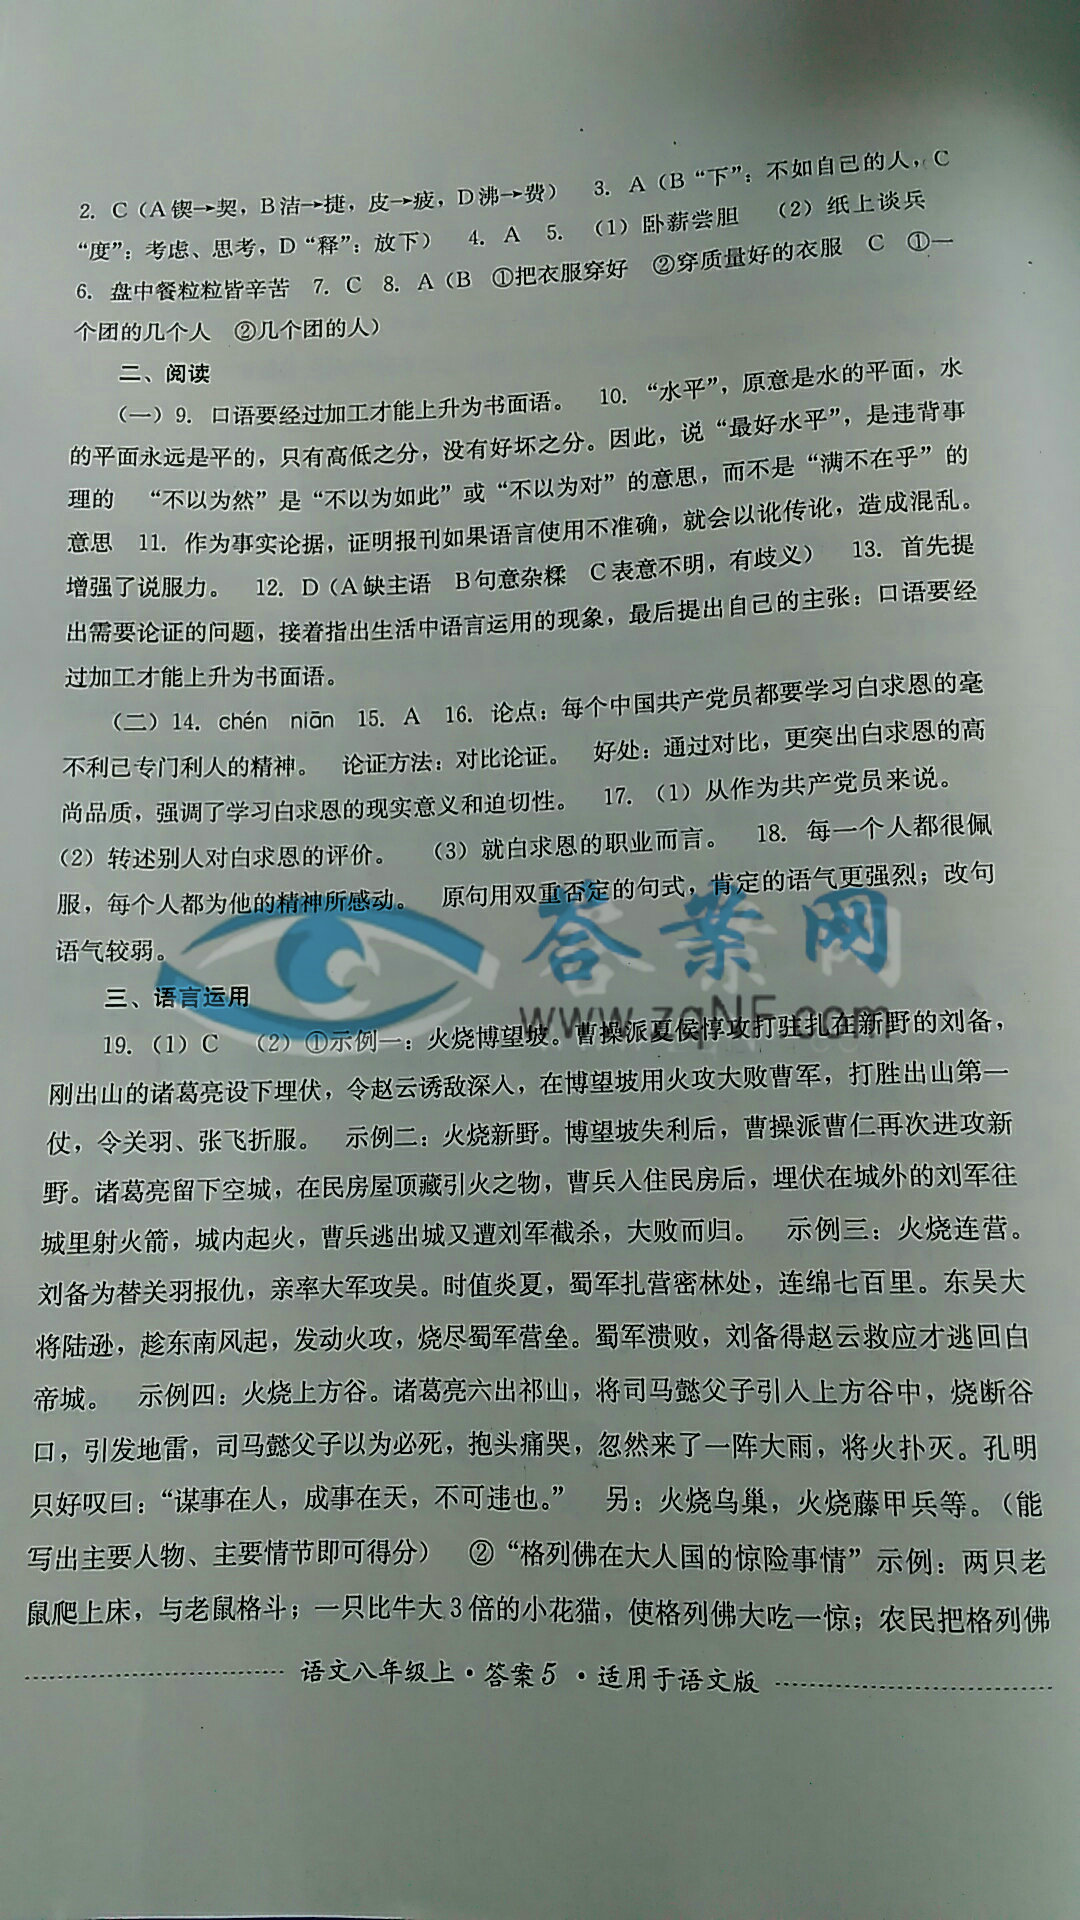 2. C（A锲→契，B洁→捷，皮→疲，D沸→费） 3. A（B“下”：不如自己的人，C
“度”：考虑、思考，D“释”：放下） 4. A 5. （1）卧薪尝胆 （2）纸上谈兵
6. 盘中餐粒粒皆辛苦 7. C 8. A（B ①把衣服穿好 ②穿质量好的衣服 C ①一
个团的几个人 ②几个团的人）
二、阅读
（一）9. 口语要经过加工才能上升为书面语。 10. “水平”，原意是水的平面，水
的平面永远是平的，只有高低之分，没有好坏之分。因此，说“最好水平”，是违背事
理的 “不以为然”是“不以为如此”或“不以为对”的意思，而不是“满不在乎”的
意思 11. 作为事实论据，证明报刊如果语言使用不准确，就会以讹传讹，造成混乱。
增强了说服力。 12. D（A缺主语 B句意杂糅 C表意不明，有歧义） 13. 首先提
出需要论证的问题，接着指出生活中语言运用的现象，最后提出自己的主张：口语要经
过加工才能上升为书面语。
（二）14. chén niān 15. A 16. 论点：每个中国共产党员都要学习白求恩的毫
不利己专门利人的精神。 论证方法：对比论证。 好处：通过对比，更突出白求恩的高
尚品质，强调了学习白求恩的现实意义和迫切性。 17. （1）从作为共产党员来说。
（2）转述别人对白求恩的评价。 （3）就白求恩的职业而言。 18. 每一个人都很佩
服，每个人都为他的精神所感动。 原句用双重否定的句式，肯定的语气更强烈；改句
语气较弱。
答案网
www.zqNF.com
三、语言运用
19. （1）C （2）①示例一：火烧博望坡。曹操派夏侯惇攻打驻扎在新野的刘备，
刚出山的诸葛亮设下埋伏，令赵云诱敌深入，在博望坡用火攻大败曹军，打胜出山第一
仗，令关羽、张飞折服。 示例二：火烧新野。博望坡失利后，曹操派曹仁再次进攻新
野。诸葛亮留下空城，在民房屋顶藏引火之物，曹兵入住民房后，埋伏在城外的刘军往
城里射火箭，城内起火，曹兵逃出城又遭刘军截杀，大败而归。 示例三：火烧连营。
刘备为替关羽报仇，亲率大军攻吴。时值炎夏，蜀军扎营密林处，连绵七百里。东吴大
将陆逊，趁东南风起，发动火攻，烧尽蜀军营垒。蜀军溃败，刘备得赵云救应才逃回白
帝城。 示例四：火烧上方谷。诸葛亮六出祁山，将司马懿父子引入上方谷中，烧断谷
口，引发地雷，司马懿父子以为必死，抱头痛哭，忽然来了一阵大雨，将火扑灭。孔明
只好叹曰：“谋事在人，成事在天，不可违也。” 另：火烧乌巢，火烧藤甲兵等。（能
写出主要人物、主要情节即可得分） ②“格列佛在大人国的惊险事情”示例：两只老
鼠爬上床，与老鼠格斗；一只比牛大3倍的小花猫，使格列佛大吃一惊；农民把格列佛
语文八年级上·答案5·适用于语文版